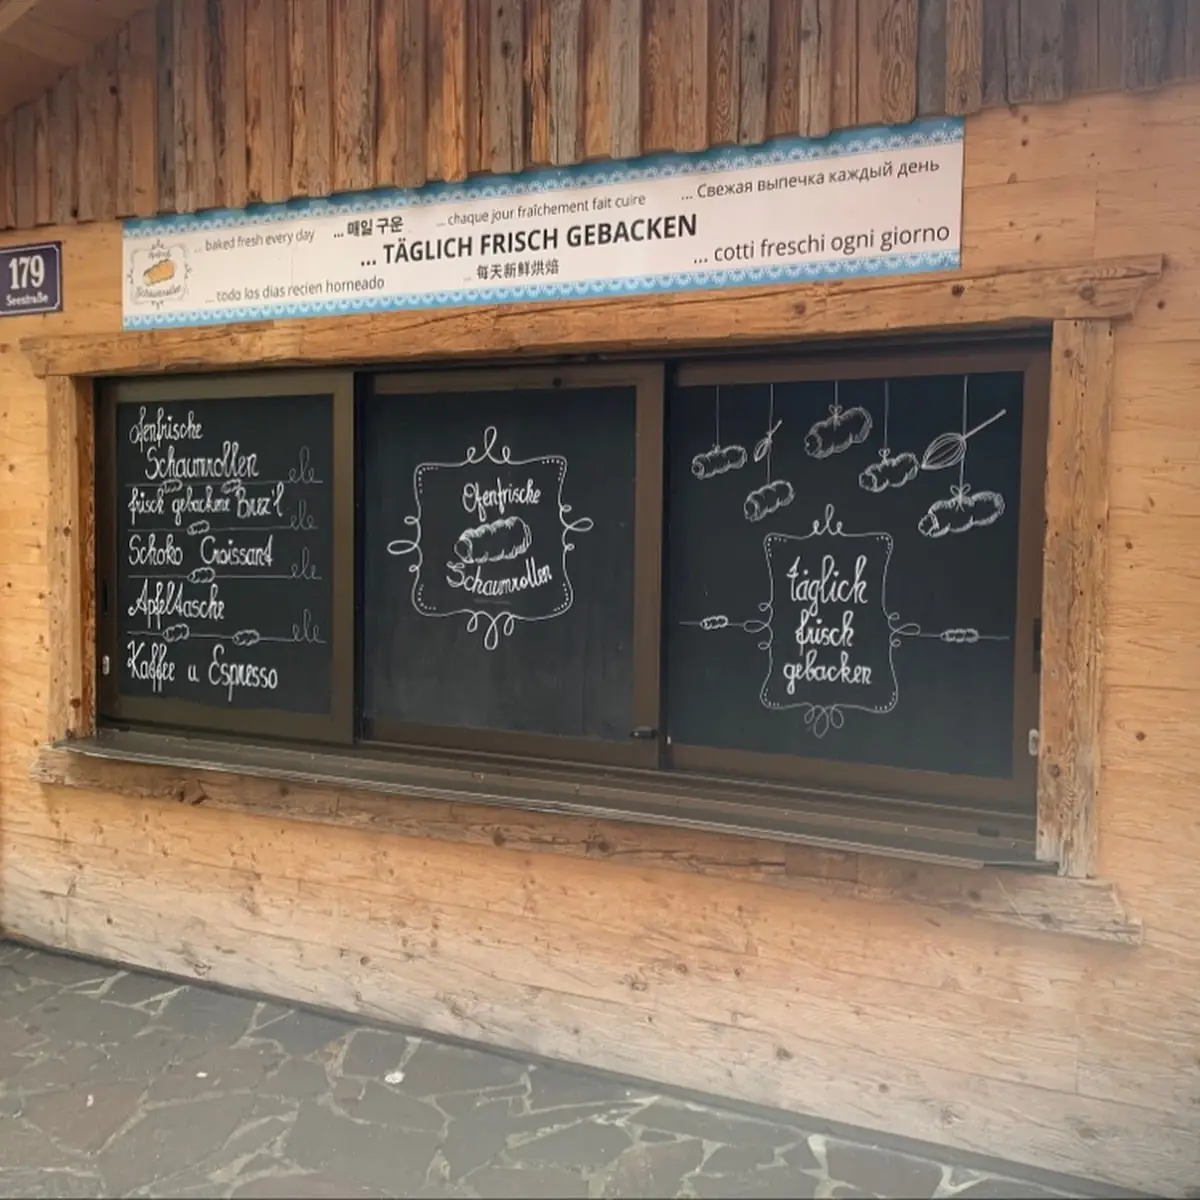 179
Seestraße
... baked fresh every day
... 매일 구운
... chaque jour fraîchement fait cuire
... Свежая выпечка каждый день
... TÄGLICH FRISCH GEBACKEN
... todo los dias recien horneado
... 每天新鲜烘焙
... cotti freschi ogni giorno
Schaumrollen
Ofenfrische
Schaumrollen
frisch gebackene Brez'l
Schoko Croissant
Apfeltasche
Kaffee u Espresso
Ofenfrische
Schaumrollen
täglich
frisch
gebacken